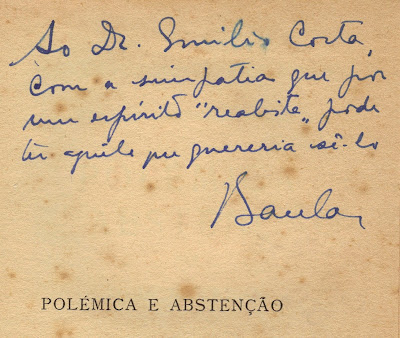 Ao Dr. Emilio Costa,
com a simpatia que por
um espírito "realista" pode
ter aquêle que quereria sê-lo
POLÉMICA E ABSTENÇÃO